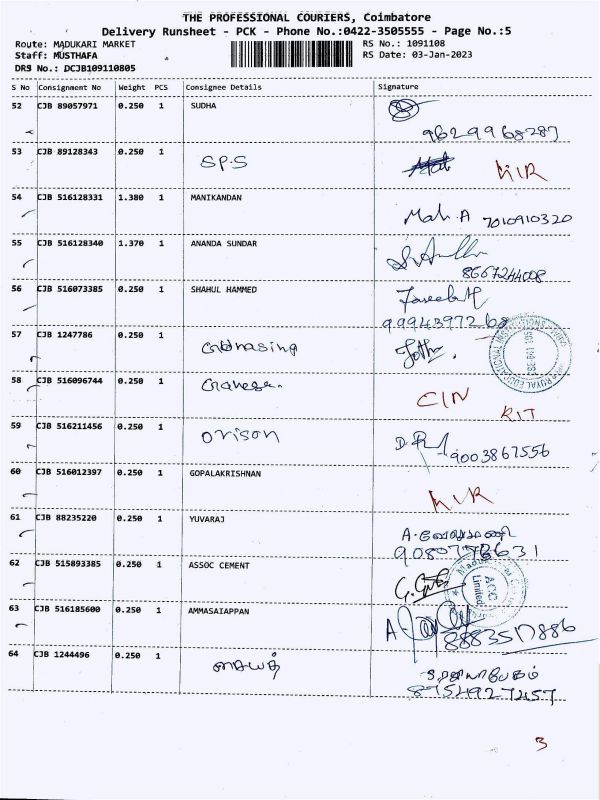 THE PROFESSIONAL COURIERS, Coimbatore
Delivery Runsheet - PCK - Phone No.:0422-3505555 - Page No.:5
Route: MADUKARI MARKET RS No.: 1091108
Staff: MUSTHAFA RS Date: 03-Jan-2023
DRS No.: DCJB109110805
S No Consignment No Weight PCS Consignee Details Signature
52 CJB 89057971 0.250 1 SUDHA
9629968287
53 CJB 89128343 0.250 1 SPS
54 CJB 516128331 1.380 1 MANIKANDAN
Mah A 7010910320
55 CJB 516128340 1.370 1 ANANDA SUNDAR
8667244008
56 CJB 516073385 0.250 1 SHAHUL HAMMED
9994397268
57 CJB 1247786 0.250 1
58 CJB 516096744 0.250 1
CIN
59 CJB 516211456 0.250 1 orison
9003867556
60 CJB 516012397 0.250 1 GOPALAKRISHNAN
61 CJB 88235220 0.250 1 YUVARAJ
62 CJB 515893385 0.250 1 ASSOC CEMENT
ACC Limited
63 CJB 516185600 0.250 1 AMMASAIAPPAN
8883517886
64 CJB 1244496 0.250 1
8754927457
3